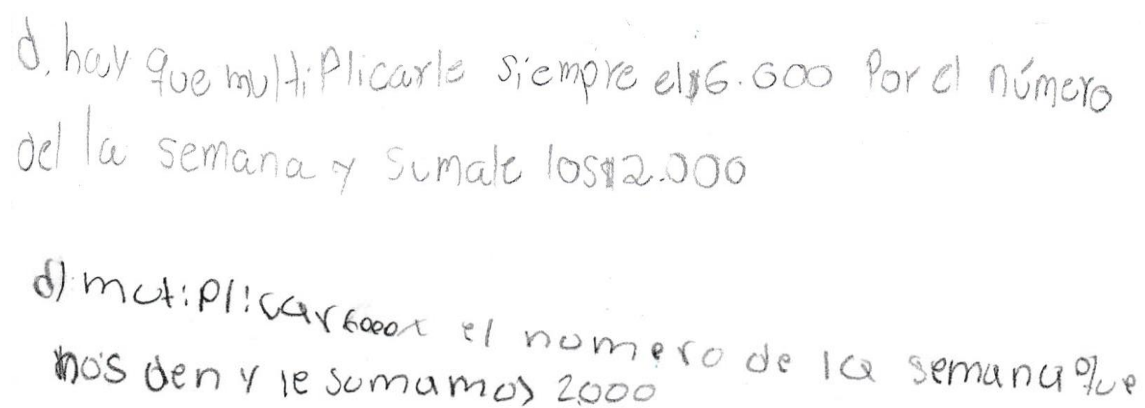 d. hay que multiplicarle siempre el $6.000 por el número
del la semana y sumale los $2.000
d) mutiplicar 6000 x el numero de la semana que
nos den y le sumamos 2000